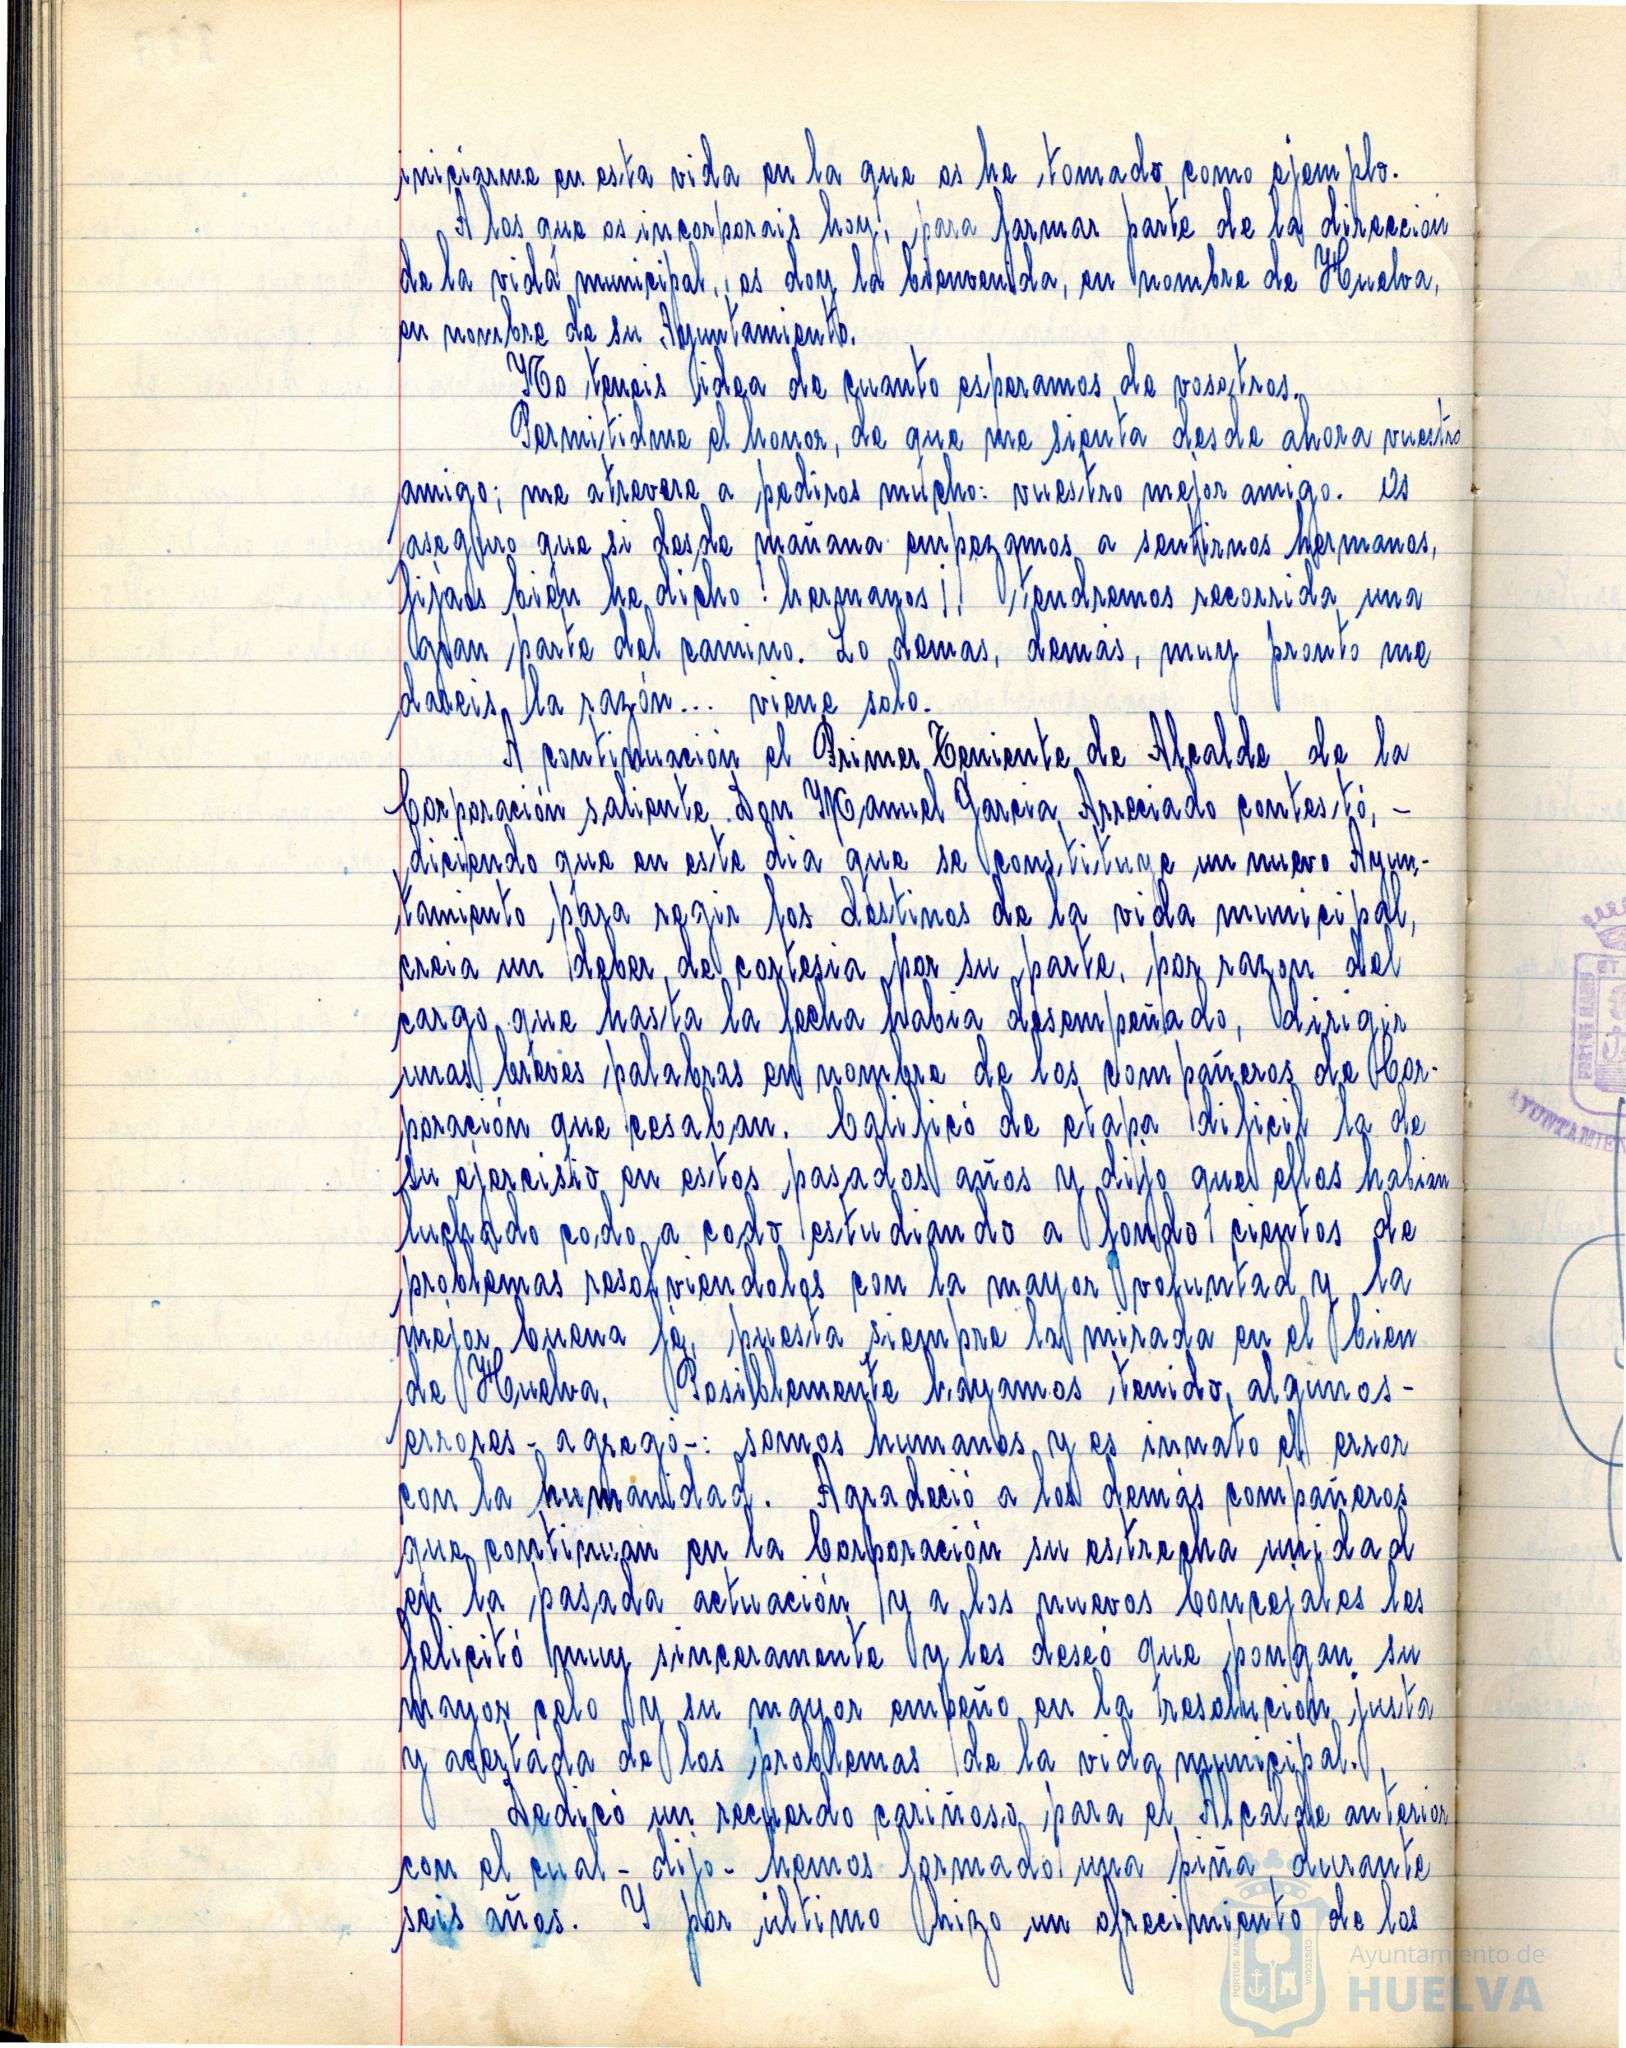 iniciarme en esta vida en la que os he tomado como ejemplo.
A los que os incorporais hoy, para formar parte de la dirección
de la vida municipal, os doy la bienvenida, en nombre de Huelva,
en nombre de su Ayuntamiento.
No teneis idea de cuanto esperamos de vosotros.
Permitidme el honor, de que me sienta desde ahora vuestro
amigo; me atrevere a pediros mucho: vuestro mejor amigo. Os
aseguro que si desde mañana empezamos a sentirnos hermanos,
fijaos bién he dicho ! hermanos ¡! tendremos recorrida una
gran parte del camino. Lo demas, demás, muy pronto me
dareis la razón... viene solo.
A continuación el Primer Teniente de Alcalde de la
Corporación saliente Don Manuel Garcia Arreciado contestó, -
diciendo que en este dia que se constituye un nuevo Ayun-
tamiento para regir los destinos de la vida municipal,
creia un deber de cortesia por su parte, por razon del
cargo que hasta la fecha habia desempeñado, dirigir
unas breves palabras en nombre de los compañeros de Cor-
poración que cesaban. Calificó de etapa dificil la de
su ejercisio en estos pasados años y dijo que ellos habian
luchado codo a codo estudiando a fondo cientos de
problemas resolviendolos con la mayor voluntad y la
mejor buena fe, puesta siempre la mirada en el bien
de Huelva. Posiblemente hayamos tenido algunos -
errores - agregó -: somos humanos y es innato el error
con la humanidad. Agradeció a los demás compañeros
que continuan en la Corporación su estrecha unidad
en la pasada actuación y a los nuevos Concejales les
felicitó muy sinceramente y les deseó que pongan su
mayor celo y su mayor empeño en la resolución justa
y acertada de los problemas de la vida municipal.
Dedicó un recuerdo cariñoso para el Alcalde anterior
con el cual - dijo - hemos formado una piña durante
seis años. Y por último hizo un ofrecimiento de los
PORTUS MARIS
CUSTODIA
Ayuntamiento de
HUELVA